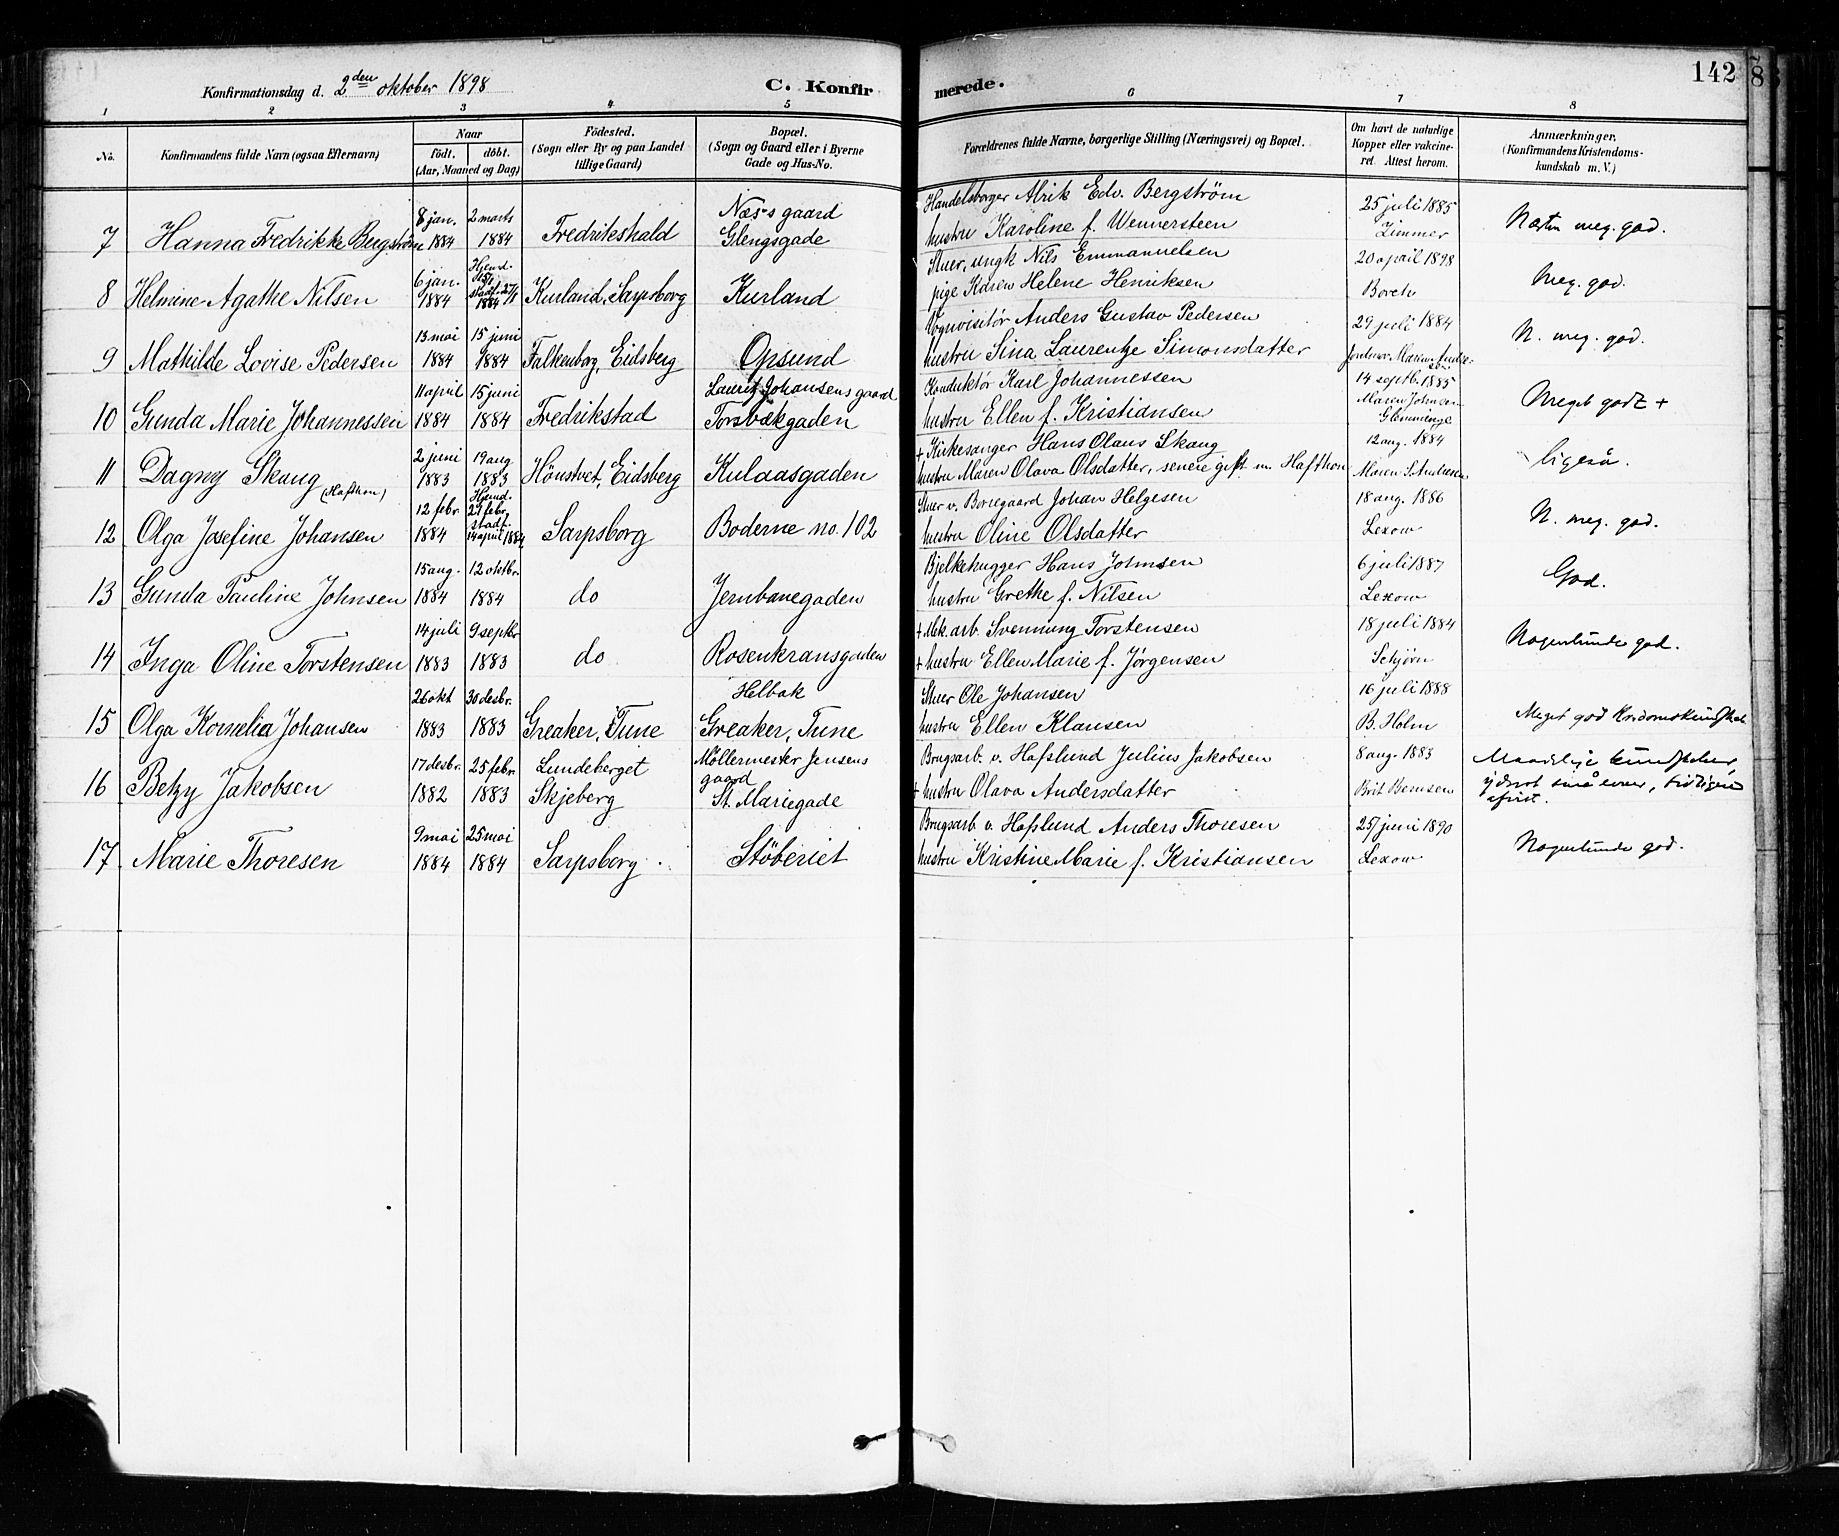 Konfirmationsdag d. 2den oktober 1898
C. Konfirmerede.
142
1 2 3 4 5 6 7 8
No.
Konfirmandens fulde Navn (ogsaa Efternavn)
Naar
födt. döbt.
(Aar, Maaned og Dag)
Födested.
(Sogn eller By og paa Landet tillige Gaard)
Bopæl.
(Sogn og Gaard eller i Byerne Gade og Hus-No.
Forældrenes fulde Navne, borgerlige Stilling (Næringsvei) og Bopæl.
Om havt de naturlige Kopper eller vakcineret. Attest herom.
Anmærkninger.
(Konfirmandens Kristendomskundskab m. V.)
7 Hanna Fredrikke Bergström 8 jan. 1884 2 marts 1884 Fredrikshald Næss gaard Glengsgade Handelsborger Alrik Edv. Bergström
hustru Karoline f. Wennersteen 25 juli 1885 Zimmer Næsten meg. god.
8 Helmine Agathe Nilsen 6 jan. 1884 Hjemd. stadf. 1884 Kurland, Sarpsborg Kurland Stuer, ungk. Nils Emmanuelsen
pige Karen Helene Henriksen 20 april 1898 Borch Meg. god.
9 Mathilde Lovise Pedersen 13 mai 1884 15 juni 1884 Falkenborg, Eidsberg Opsund Vognvisitör Anders Gustav Pedersen
hustru Sina Laurentze Simonsdatter 29 juli 1884 N. meg. god.
10 Gunda Marie Johannessen 11 april 1884 15 juni 1884 Fredrikstad Lauritz Johansens gaard Torsbækgaden Konduktör Karl Johannessen
hustru Ellen f. Kristiansen 14 septb. 1885 Maren Johnsen Glemminge Meget godt +
11 Dagny Skaug (Hafthon) 2 juni 1883 19 aug 1883 Hönstvet, Eidsberg Kulaasgaden + Kirkesanger Hans Olaus Skaug
hustru Maren Olava Olsdatter, senere gift m. Hafthon 12 aug. 1884 Maren S. Andersen ligeså.
12 Olga Josefine Johansen 12 febr. 1884 Hjemd. 29 febr. stadf. 14 april 1884 Sarpsborg Boderne no. 102 Stuer v. Borregaard Johan Helgesen
hustru Oline Olsdatter 18 aug. 1886 Lexow N. meg. god.
13 Gunda Pauline Johnsen 15 aug. 1884 12 oktbr. 1884 do Jernbanegaden Bjelkehugger Hans Johnsen
hustru Grethe f. Nilsen 6 juli 1887 Lexow God.
14 Inga Oline Torstensen 14 juli 1883 9 septbr 1883 do Rosenkransgaden + Mek. arb. Svennung Torstensen
+ hustru Ellen Marie f. Jørgensen 18 juli 1884 Schjörn Nogenlunde god.
15 Olga Kornelia Johansen 26 okt 1883 30 desbr. 1883 Greaker, Tune Helbak Greaker, Tune Stuer Ole Johansen
hustru Ellen Klausen 16 juli 1888 B. Holm Meget god
16 Betzy Jakobsen 17 desbr. 1882 25 febr. 1883 Lundeberget Skjeberg Möllermester Jensens gaard St. Mariegade Brugsarb. v. Hafslund Julius Jakobsen
+ hustru Olava Andersdatter 8 aug. 1883 Brit Berntsen Maadelige kundskaber, yderst små evner,
17 Marie Thoresen 9 mai 1884 25 mai 1884 Sarpsborg Stöberiet Brugsarb. v. Hafslund Anders Thoresen
hustru Kristine Marie f. Kristiansen 25 juni 1890 Lexow Nogenlunde god.